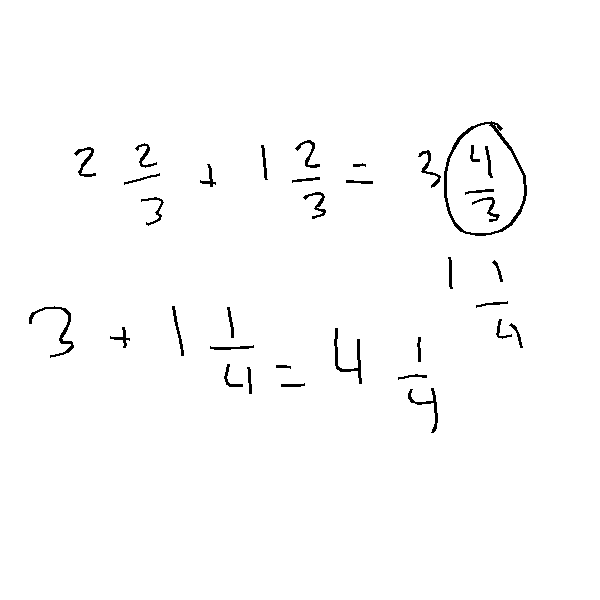 2 2/3 + 1 2/3 = 3 4/3
1 1/4
3 + 1 1/4 = 4 1/4